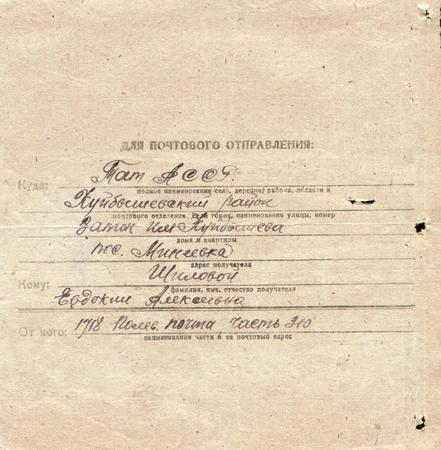 ДЛЯ ПОЧТОВОГО ОТПРАВЛЕНИЯ:
Куда: Тат АССР.
полное наименование села, деревни, района, области и
Куйбышевский район
почтового отделения. Для город, наименование улицы, номер
Затон им Куйбышева
дома и квартиры
пос. Минеевка
адрес получателя
Кому: Шиловой
фамилия, имя, отчество получателя
Евдокии Алексевна
От кого: 1718 Полев. почта, часть 310
наименование части и ее почтовый адрес